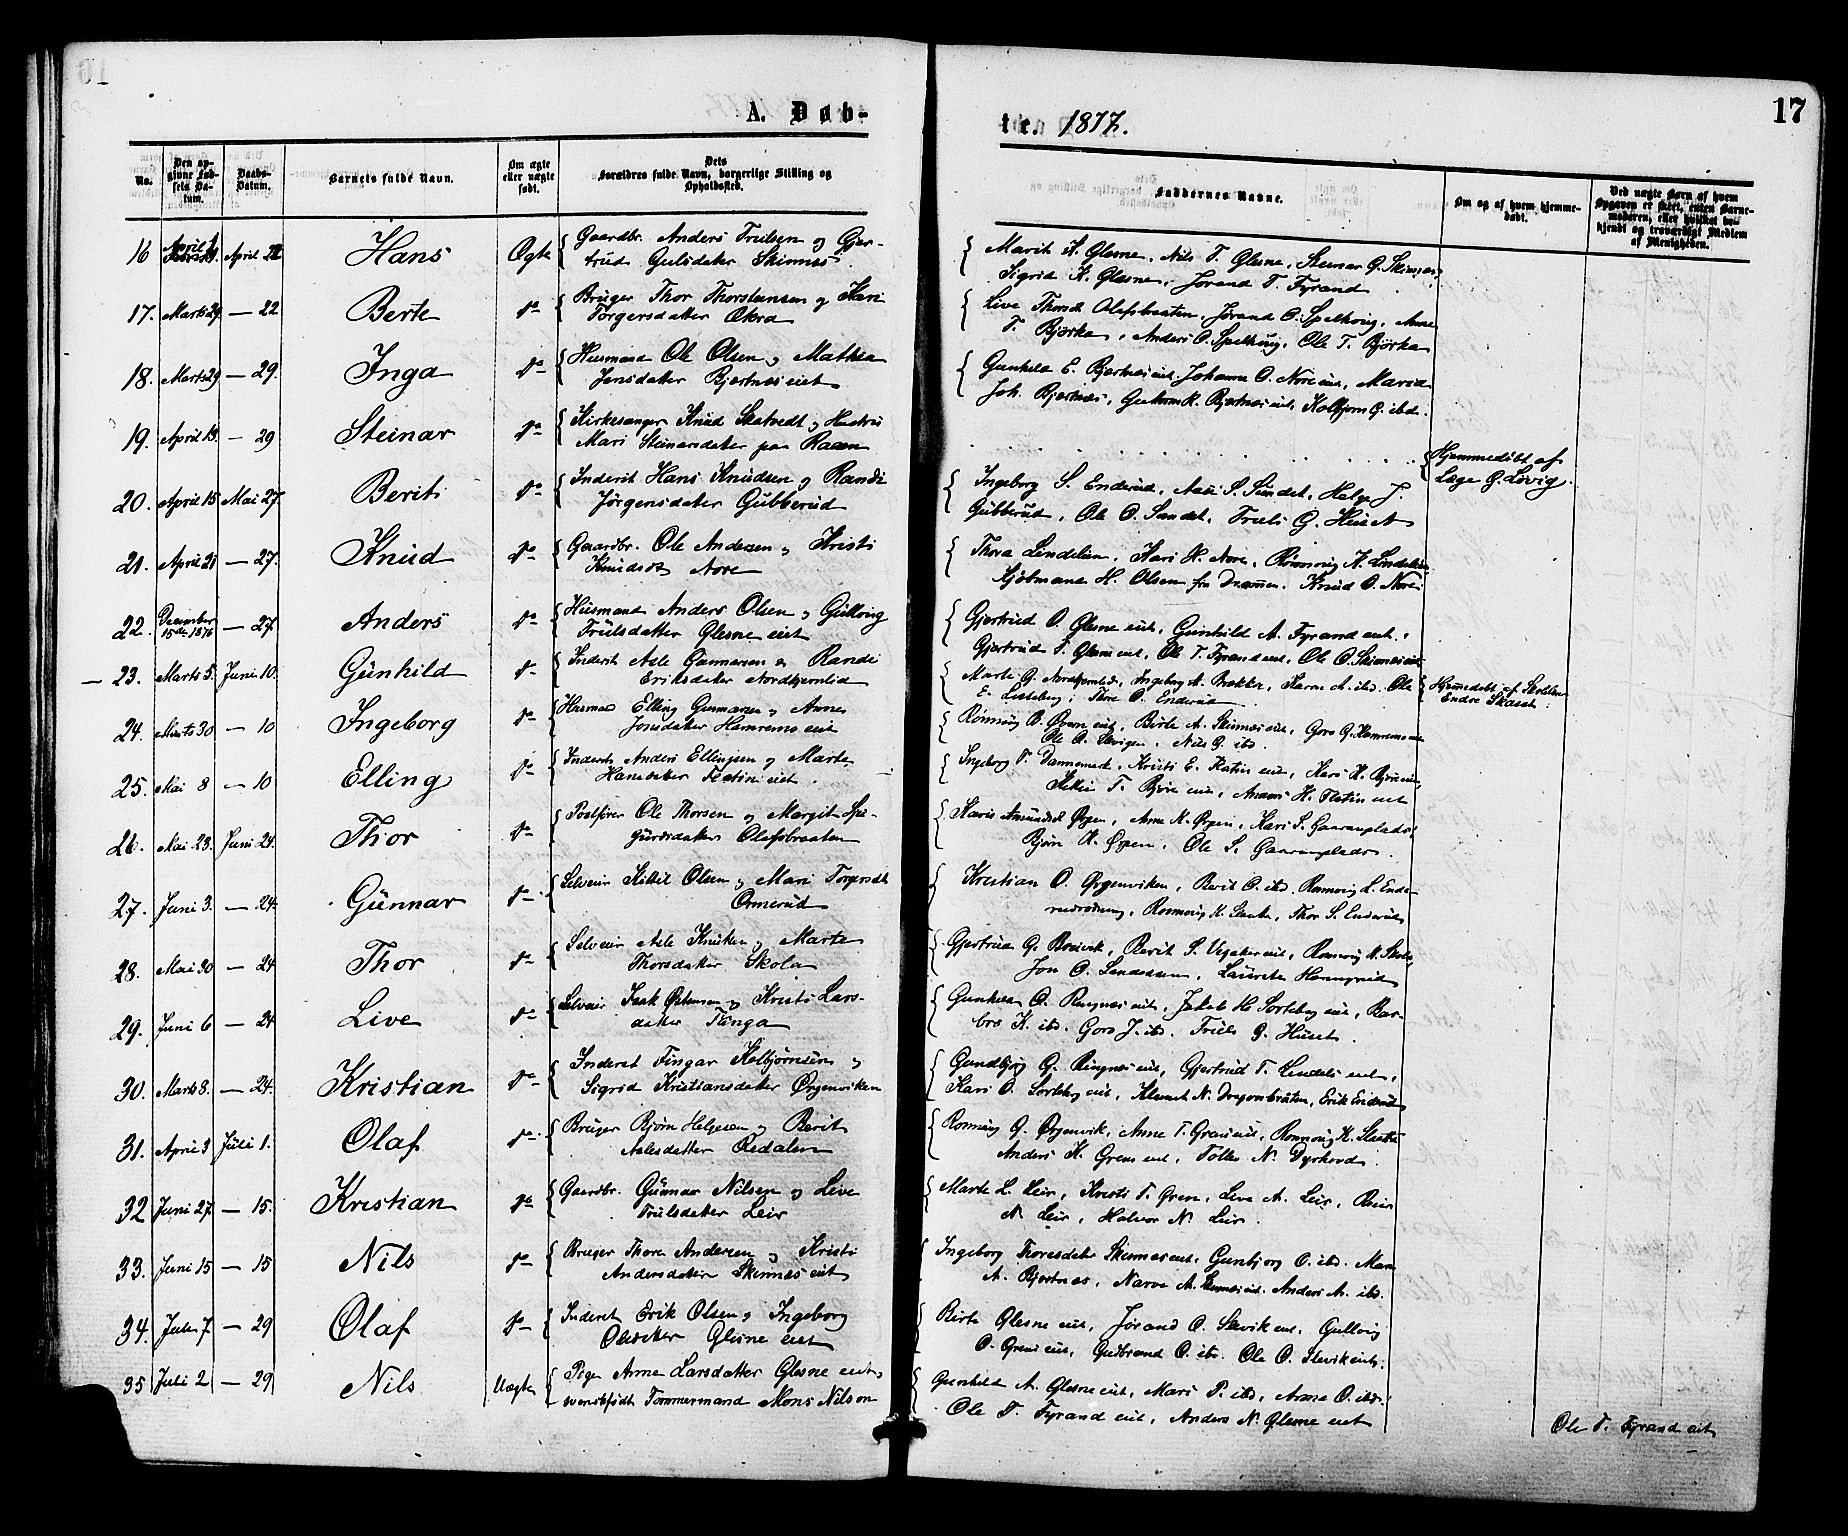 17
A. Døb-
te. 1877.
No.
Den op-
givne Fød-
sels Da-
tum.
Daabs-
Datum.
Barnets fulde Navn.
Om ægte
eller uægte
født.
Dets
Forældres fulde Navn, borgerlige Stilling og
Opholdssted.
Faddernes Navne.
Om og af hvem hjemme-
døbt.
Ved uægte Børn af hvem
Opgaven er skeet, enten Barne-
moderen, eller hvilket be-
kjendt og troværdigt Medlem
af Menigheden.
16 April April 22 Hans Ægte Gaardbr. Anders Trulsen og Gjer-
trud Gulsdatter Skinnes
Marit K. Glesne, Nils T. Glesne, Steinar G. Skinnes,
Sigrid K. Glesne, Jørand T. Fyrand
17. Marts 29. — 22 Berte do Bruger Thor Thorstensen og Kari
Torgersdatter Økra
Live Thorsd. Olafsbraaten, Jørand O. Spelhoug, Anne
T. Bjørka, Anders O. Spelhoug, Ole T. Bjørka
18. Marts 29 — 29. Inga do Husmand Ole Olsen og Mathia
Jonsdatter Bjertnes eiet
Gunhild E. Bjertnes eiet, Johanne O. Nore eiet, Maria
Joh. Bjertnes, Guttorm K. Bjertnes eiet, Kolbjørn G. ibd.
19. April 13. — 29 Steinar do Kirkesanger Knud Skatvedt og Hustru
Mari Steinarsdatter paa Raaen
Hjemmedøbt af
Læge G. Lövig.
20. April 15 Mai 27. Berit do Inderst Hans Knudsen og Randi
Jørgensdatter Gubberud
Ingeborg S. Enderud, Aase S. Sundet, Helge J.
Gubberud, Ole O. Sandet, Truls G. Huset
21. April 21 — 27. Knud do Gaardbr. Ole Andersen og Kristi
Knudsdt Nore
Thora Lindelien, Kari K. Nore, Rønnoug K. Lindelien,
Kjøbmand H. Olsen fra Drammen, Knud O. Nore
22. December
15de 1876 — 27 Anders do Husmand Anders Olsen og Gulloug
Trulsdatter Glesne eiet
Gjertrud O. Glesne eiet, Gunhild A. Fyrand eiet,
Gjertrud T. Glesne eiet, Ole T. Fyrand eiet, Ole O. Skinnes eiet
23. Marts 5. Juni 10. Gunhild do Inderst Asle Gunnarsen og Randi
Eriksdatter Nordhjemlid
Marte G. Ingeborg A. Brække, Karen A. ibd. Ole
E. Thore O. Enderud
Hjemmedøbt af Skolelærer
Endre Skaset.
24. Marts 30 — 10 Ingeborg do Husmand Elling Gunnarsen og Anne
Jonsdatter Hamremo eiet
Rønnoug B. eiet, Birte A. Skinnes eiet, Goro G. Hamremo eiet
Ole A. Slevigen, Nils G. ibd.
25. Mai 8 — 10 Elling do Inderst Anders Ellingsen og Marte
Hansdatter Flatin eiet
Ingeborg T. Dannemark, Kristi E. Flatin eiet, Kari K. Bjøre eiet,
T. Bjøre eiet, Anders H. Flatin eiet
26. Mai 23. Juni 24. Thor do Postfører Ole Thorsen og Margit Si-
gurdsdatter Olafsbraaten
Kari Amundsd. Ørpen, Anne K. Ørpen, Kari S. Gaaranplads
Bjørn K. Ørpen, Ole S. Gaaranplads.
27. Juni 3. — 24. Gunnar do Selveier Kittil Olsen og Mari Torgersdt
Ormerud
Kristian O. Ørgenviken, Berit O. ibd. Rønnoug L. Ende-
rudrødning, Rønnoug K. Slaata, Thor S. Enderud
28. Mai 30 — 24 Thor do Selveier Asle Knutsen og Marte
Thorsdatter Skola
Gjertrud G. Berit S. eiet, Rønnoug K. Skola,
Jon O. Laurits
29. Juni 6 — 24 Live do Selveier Isak Østensen og Kristi Lars-
datter Tlenga
Gunhild O. Ringnes eiet, Jakob H. Sorteberg eiet, Bar-
bro K. ibd. Goro J. ibd. Truls G. Huset.
30. Marts 8. — 24. Kristian do Inderst Fingar Kolbjørnsen og
Sigrid Kristiansdatter Ørgenviken
Gundbjør G. Ringnes eiet, Gjertrud T. Lindeli eiet,
Kari O. Sorteberg eiet, Klemet N. Dragonbråten, Erik Enderud
31. April 3 Juli 1. Olaf do Bruger Bjørn Helgesen og Berit
Aslesdatter Redalen
Rønnoug G. Ørgenvik, Anne T. Grøn eiet, Rønnoug K. Slaata
Anders K. Grøn eiet, Tollev N. Dyrhovd.
32 Juni 27 — 15. Kristian do Gaardbr. Gunnar Nilsen og Live
Trulsdatter Leir
Marte L. Leir, Kristi T. Gren, Live A. Leir, Beier
N. Leir, Halvor N. Leir.
33. Juni 15 — 15 Nils do Bruger Thore Andersen og Kristi
Andersdatter Skinnes eiet
Ingeborg Thoresdatter Skinnes eiet, Gunbjørg O. ibd. Mari
A. Bjertnes, Narve A. Skinnes eiet. Anders A. ibd.
34. Juli 7 — 29 Olaf do Inderst Erik Olsen og Ingeborg
Olsdatter Glesne eiet
Birte Glesne eiet, Jørand O. Slevik eiet, Gullvig
O. Gren eiet, Gudbrand O. ibd. Ole O. Slevik eiet.
35 Juli 2 — 29 Nils Uægte Pige Anne Larsdatter Glesne eiet og
svenskfødt Tømmermand Mons Nilson
Gunhild A. Glesne eiet, Mari P. ibd, Anne O. ibd.
Ole T. Fyrand eiet, Anders N. Glesne eiet
Ole T. Fyrand eiet